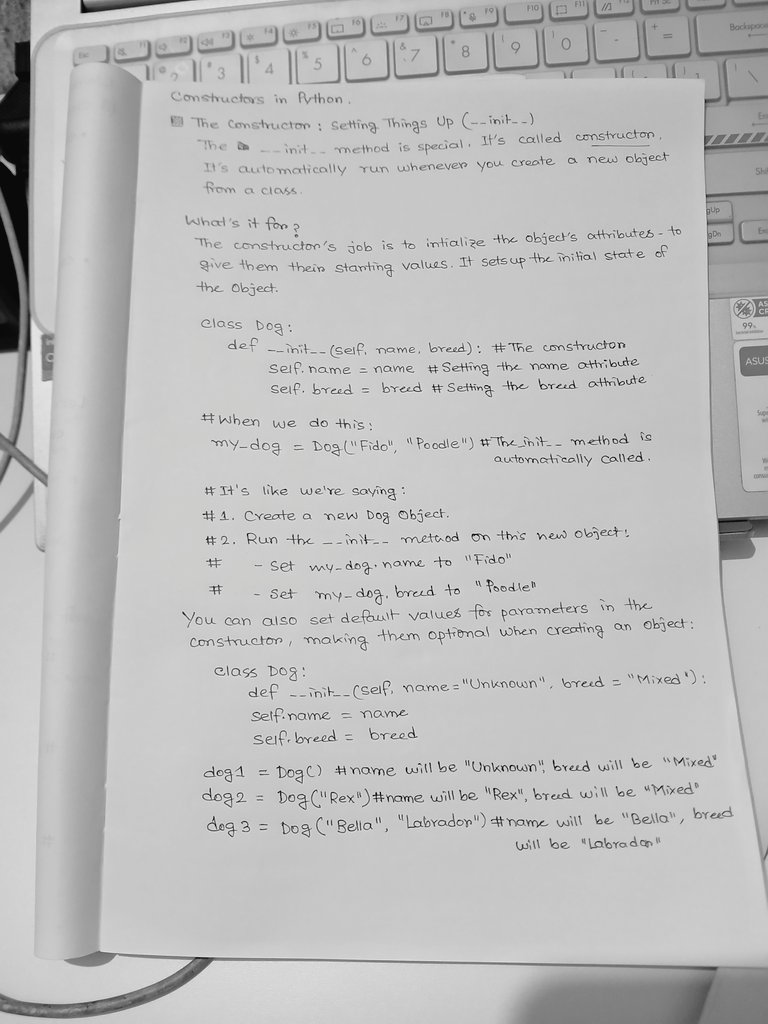 Constructors in Python.
The Constructor: Setting Things Up (__init__)
The __init__ method is special. It's called constructor.
It's automatically run whenever you create a new object
from a class.
What's it for?
The constructor's job is to intialize the object's attributes - to
give them their starting values. It sets up the initial state of
the Object.
class Dog:
def __init__(self, name, breed): #The constructor
self.name = name #Setting the name attribute
self.breed = breed #Setting the breed attribute
#When we do this:
my_dog = Dog("Fido", "Poodle") #The_init__ method is
automatically called.
# It's like we're saying:
#1. Create a new Dog Object.
#2. Run the __init__ method on this new object:
# - Set my_dog.name to "Fido"
# - Set my_dog.breed to "Poodle"
You can also set default values for parameters in the
constructor, making them optional when creating an object:
class Dog:
def __init__(self, name="Unknown", breed = "Mixed"):
self.name = name
self.breed = breed
dog1 = Dog() #name will be "Unknown", breed will be "Mixed"
dog2 = Dog("Rex") #name will be "Rex", breed will be "Mixed"
dog3 = Dog("Bella", "Labrador") #name will be "Bella", breed
will be "Labrador"
Esc F1 F2 F3 F4 F5 F6 F7 F8 F9 F10 F11
2 # 3 $ 4 % 5 ^ 6 & 7 * 8 ( 9 ) 0 _ - + = Backspace
Shi
gUp
gDn
99%
ASUS